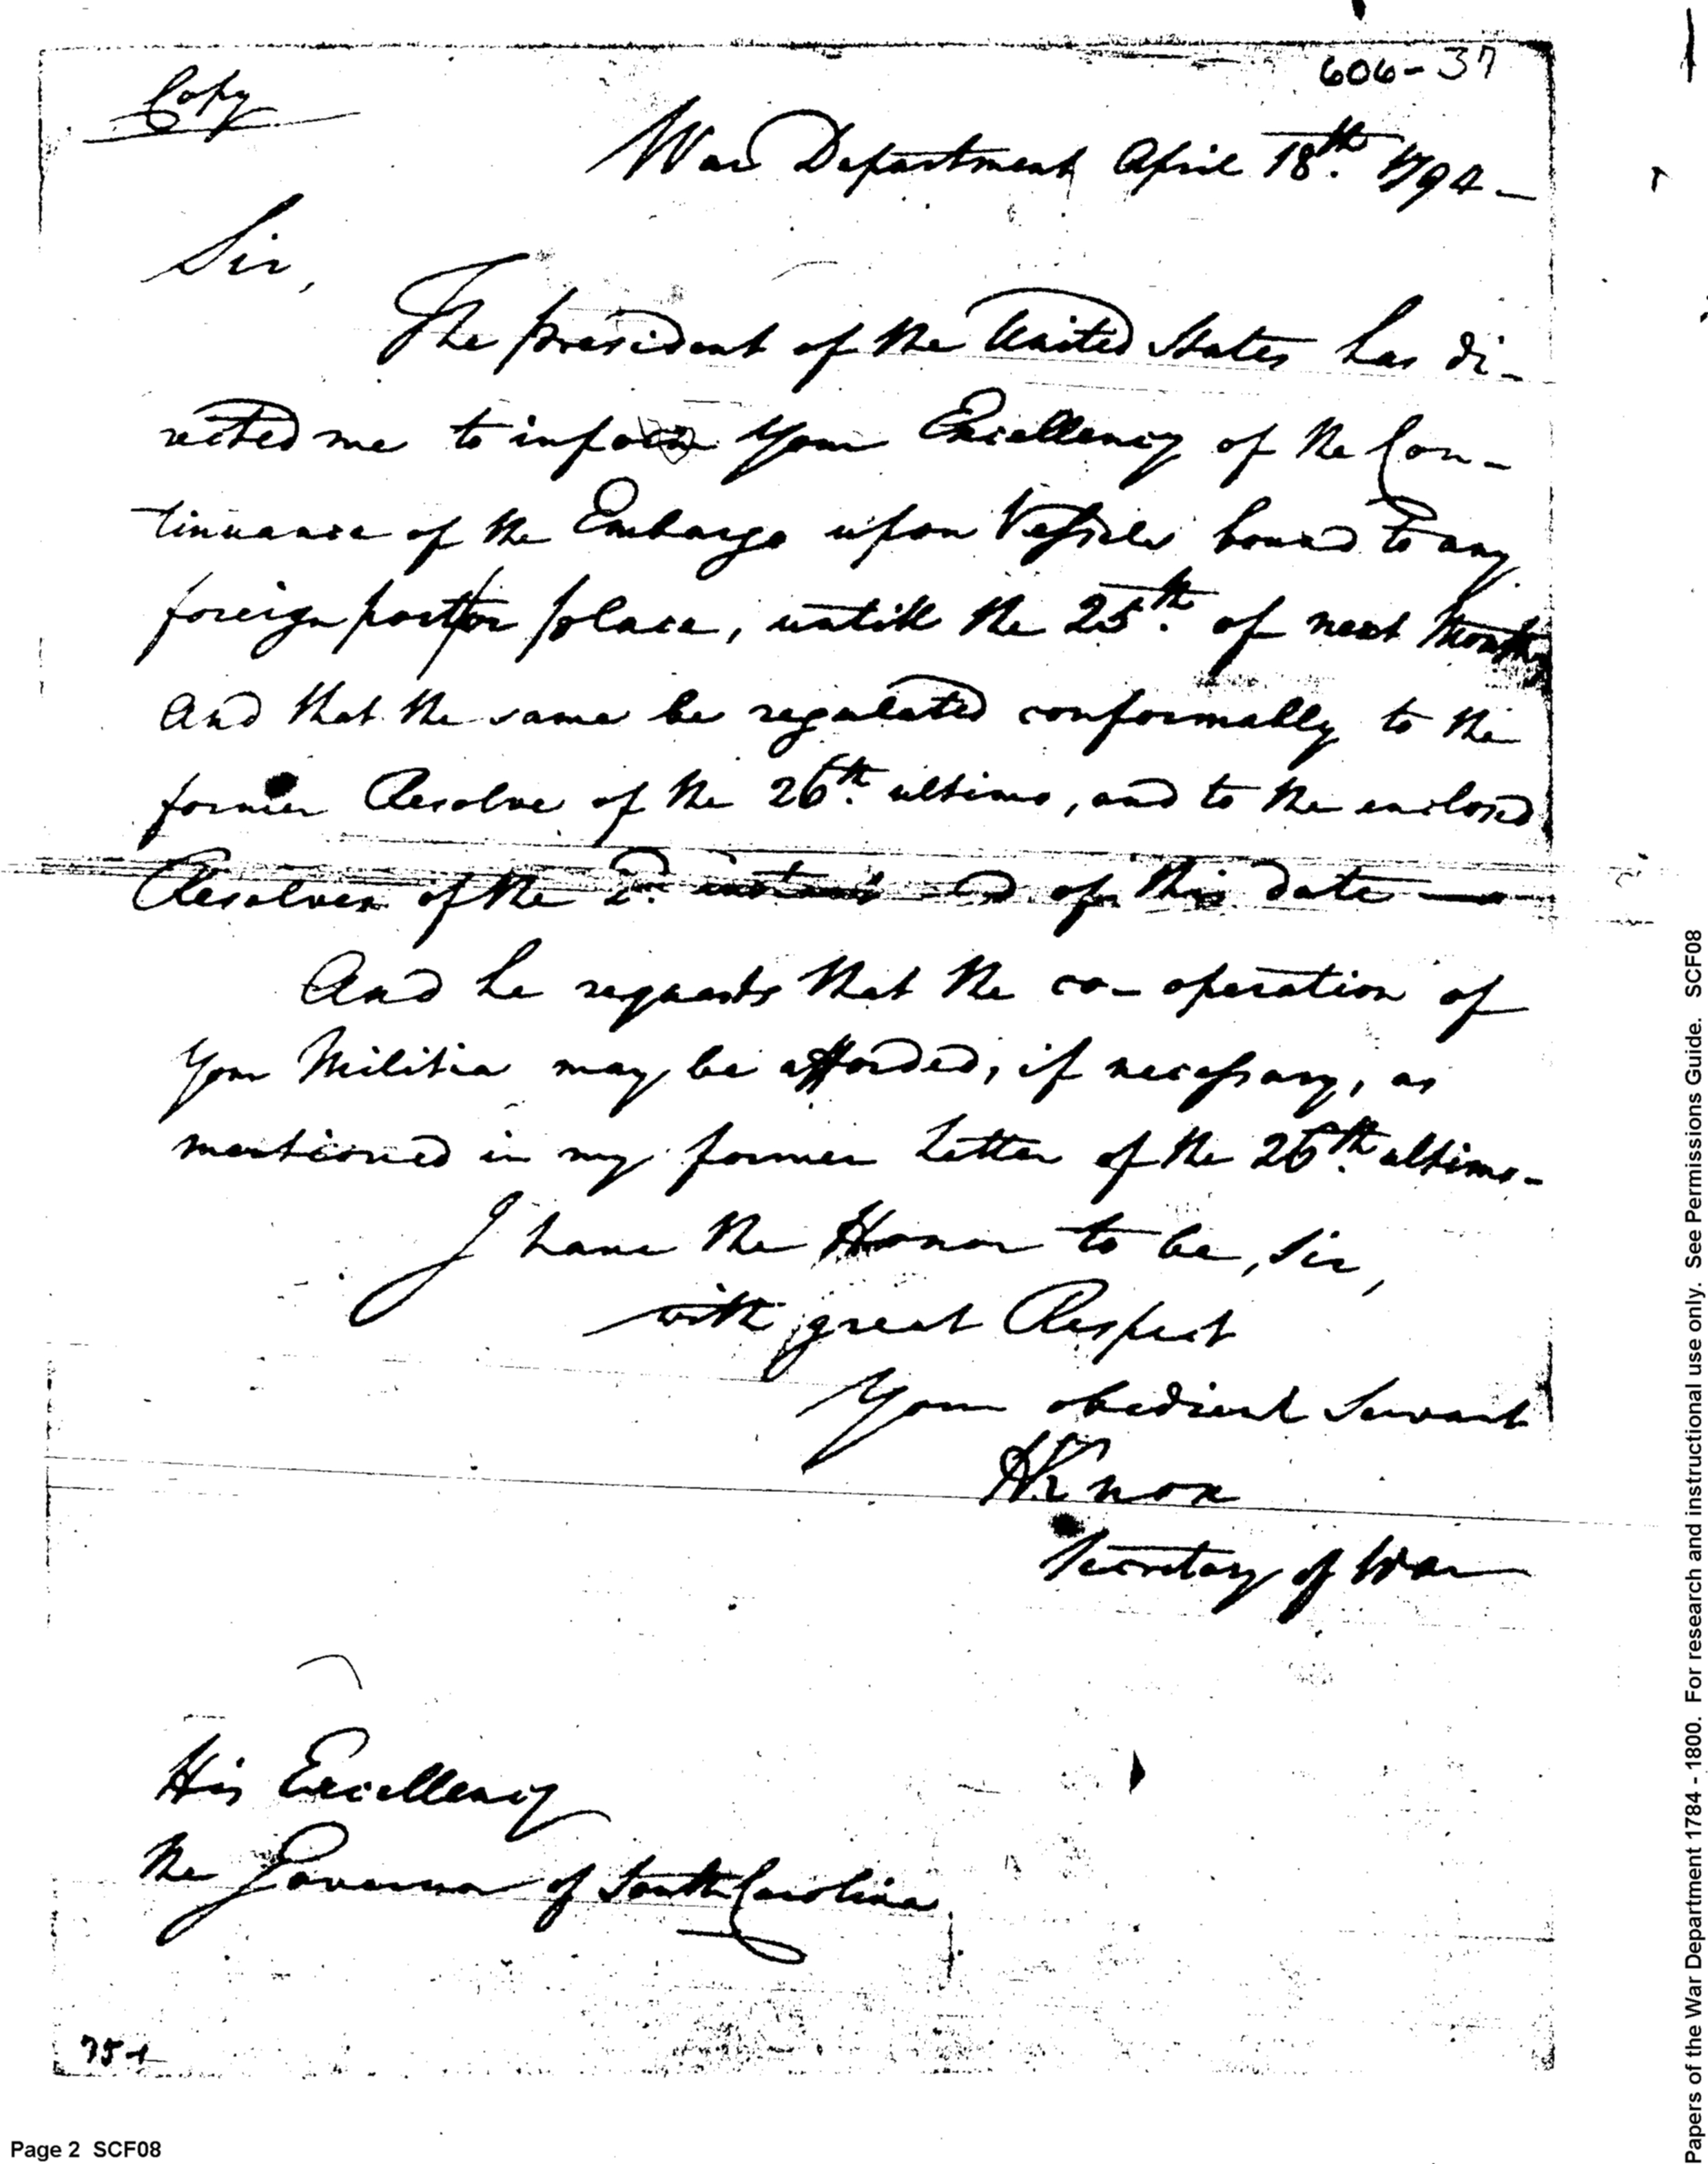 606-37
Copy
War Department April 18th. 1794-
Sir,
The president of the United States has di-
rected me to inform Your Excellency of the Con-
tinuance of the Embargo upon Vessels bound to any
foreign port or place, untill the 25th. of next Month
And that the same be regulated conformably to the
former Resolve of the 26th. ultimo, and to the enclosed
Resolves of the 2d. instant and of this date
And he requests that the co-operation of
Your Militia may be afforded, if necessary, as
mentioned in my former Letter of the 26th. ultimo-
I have the Honor to be, Sir,
with great Respect
Your obedient Servant
HKnox
Secretary of War
His Excellency
the Governor of South Carolina
Page 2 SCF08
Papers of the War Department 1784 - 1800. For research and instructional use only. See Permissions Guide. SCF08